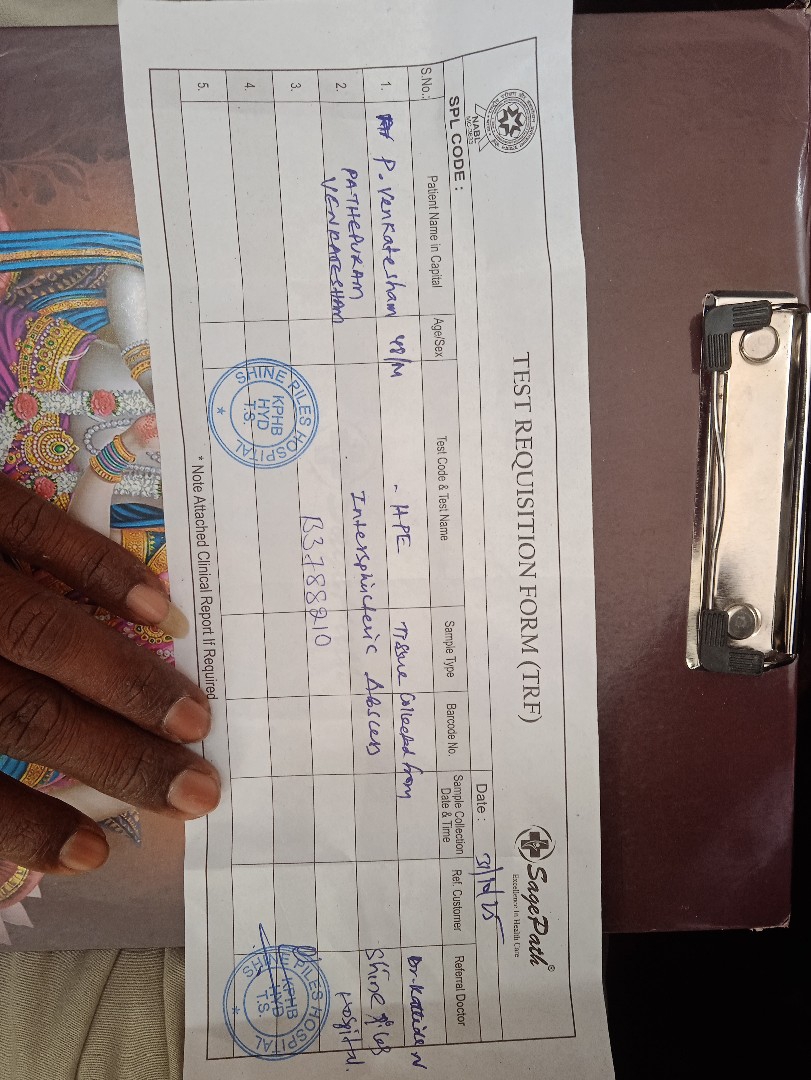 TEST REQUISITION FORM (TRF)
SagePath®
Excellence in Health Care
NABL
SPL CODE :
Date :
S.No.: Patient Name in Capital Age/Sex Test Code & Test Name Sample Type Barcode No. Sample Collection Date & Time Ref. Customer Referral Doctor
1. P. Venkatesham 48/M - HPE Tissue Collected from
Shine Piles
2. PATHEPURAM Intersphincteric Abscess Hospital.
VENKATESHAM
3. B3788210
4.
5.
SHINE PILES HOSPITAL
KPHB
HYD
T.S.
PILES HOSPITAL
KPHB
HYD
T.S.
* Note Attached Clinical Report If Required